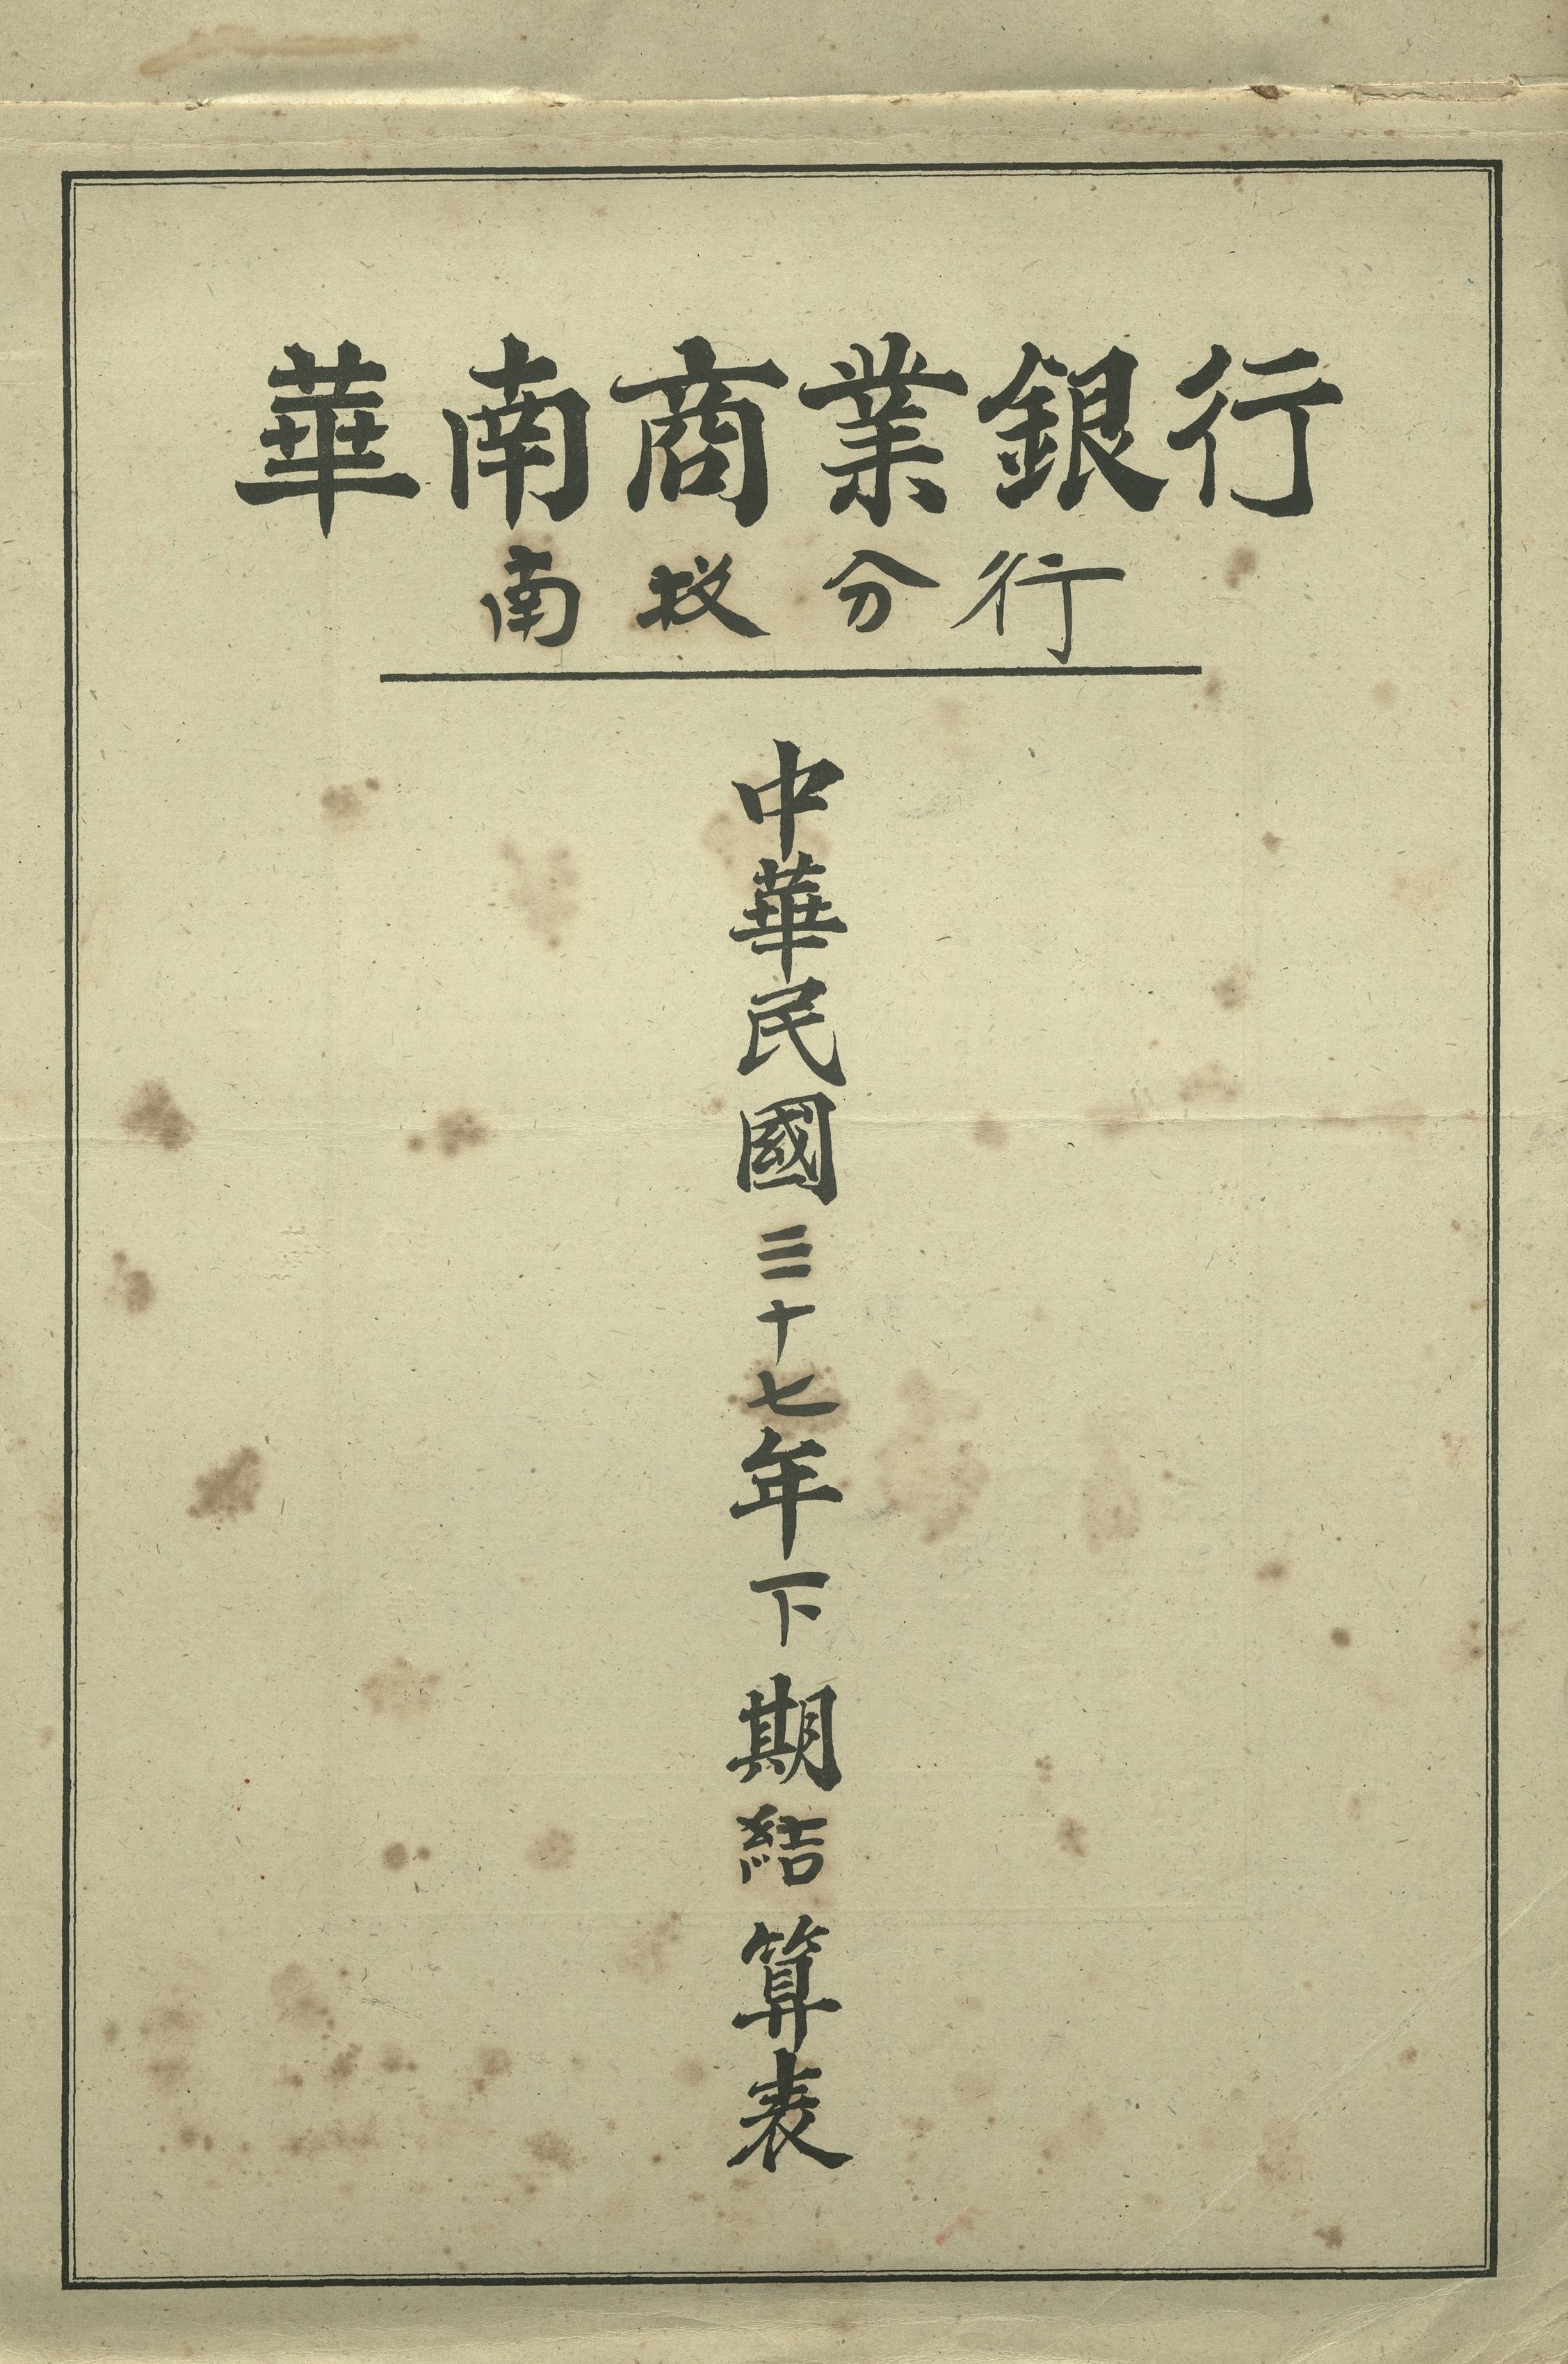 華南商業銀行
南投分行
中華民國三十七年下期結算表